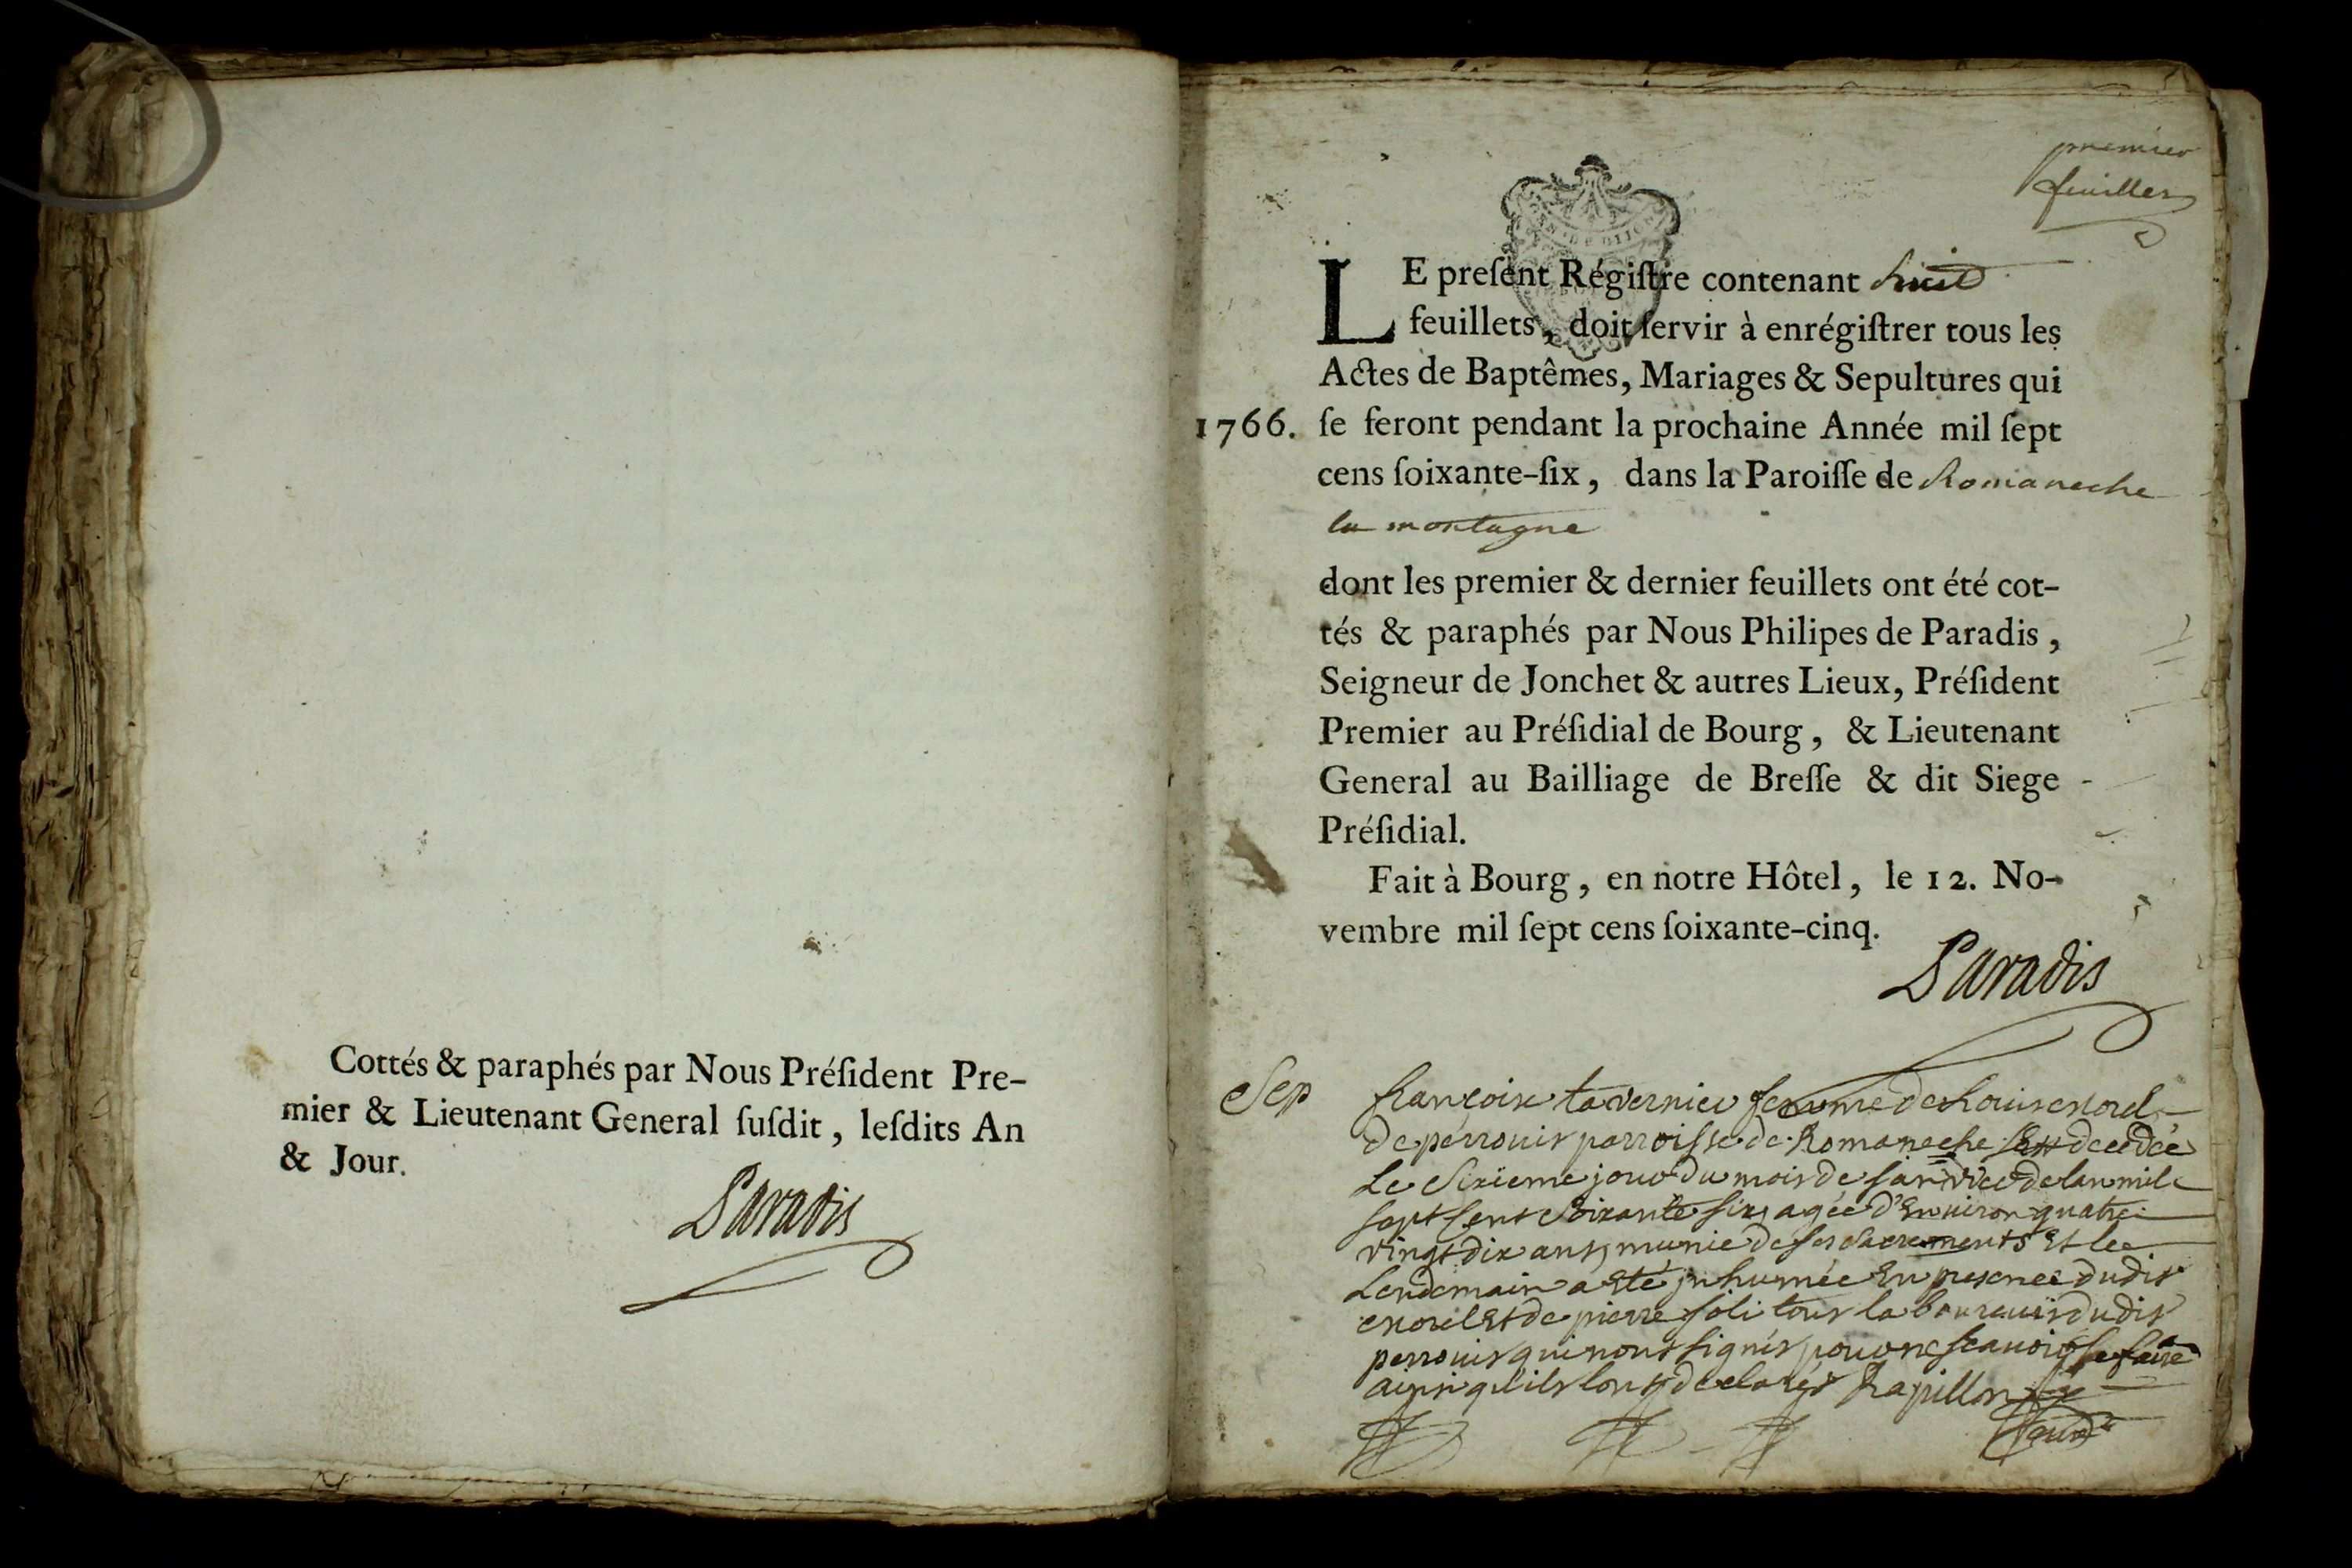 Cottés & paraphés par Nous Préſident Pre-
mier & Lieutenant General ſuſdit, leſdits An
& Jour.
Paradis
premier
feuillet
LE preſent Régiſtre contenant huit
feuillets, doit ſervir à enrégiſtrer tous les
Actes de Baptêmes, Mariages & Sepultures qui
1766. ſe feront pendant la prochaine Année mil ſept
cens ſoixante-ſix, dans la Paroiſſe de Romaneche
la montagne
dont les premier & dernier feuillets ont été cot-
tés & paraphés par Nous Philipes de Paradis,
Seigneur de Jonchet & autres Lieux, Préſident
Premier au Préſidial de Bourg, & Lieutenant
General au Bailliage de Breſſe & dit Siege
Préſidial.
Fait à Bourg, en notre Hôtel, le 12. No-
vembre mil ſept cens ſoixante-cinq.
Paradis
Sep françoise tavernier femme de Louis
de perrouis parroisse de Romaneche est decedée
Le Sixieme jour du mois de janvier de lan mil
sept sent Soixante six, agée d'Environ quatre
vingt dix ans, munie de ses Sacrements Et le
Lendemain a Eté inhumée En presence dudit
Et de pierre joli tous laboureurs dudit
perrouis qui nont signés pour ne scauoir le faire
ainsi qu'ils lont declarés Rapillon